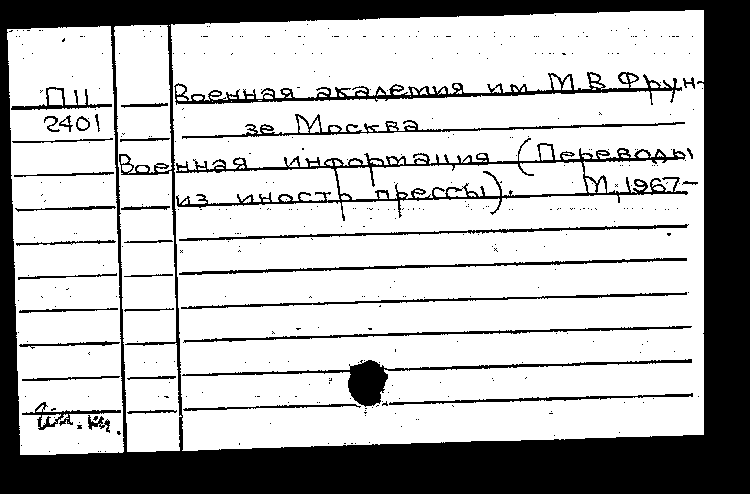 П11
2401
Военная академия им М.В Фрун-
зе Москва
Военная информация (Переводы
из иностр прессы). М, 1967-
кч.